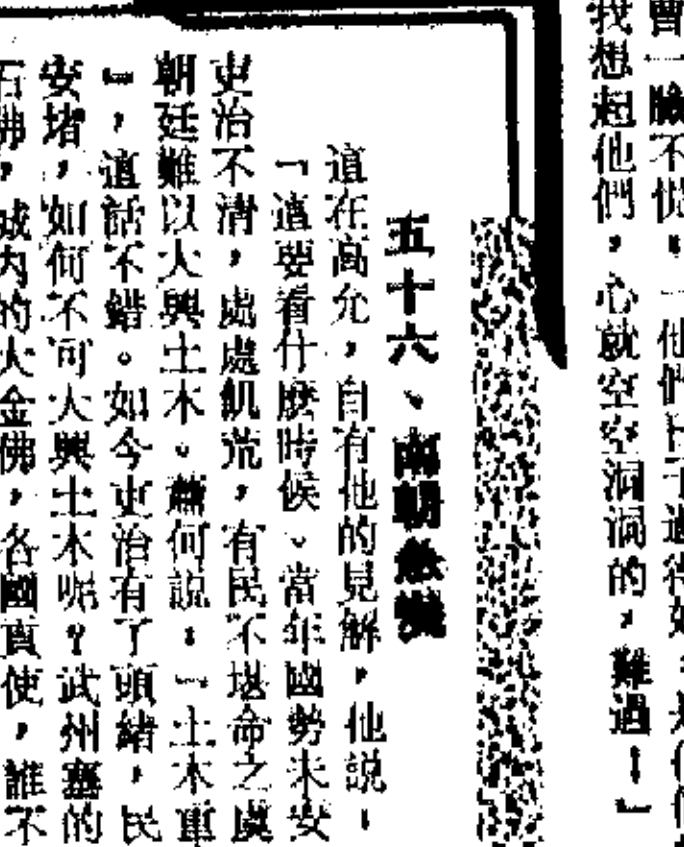 曹一臉不悅，「他們日子過得好，是他們
我想起他們，心就空空洞洞的，難過！」
五十六、南朝
這在高允，自有他的見解，他說：
「這要看什麼時候、當年國勢未安
吏治不清，處處飢荒，有民不堪命之虞
朝廷難以大興土木。蕭何說：「土木重
」，這話不錯。如今吏治有了頭緒，民
安堵，如何不可大興土木呢？武州塞的
石佛，城內的大金佛，各國貢使，誰不